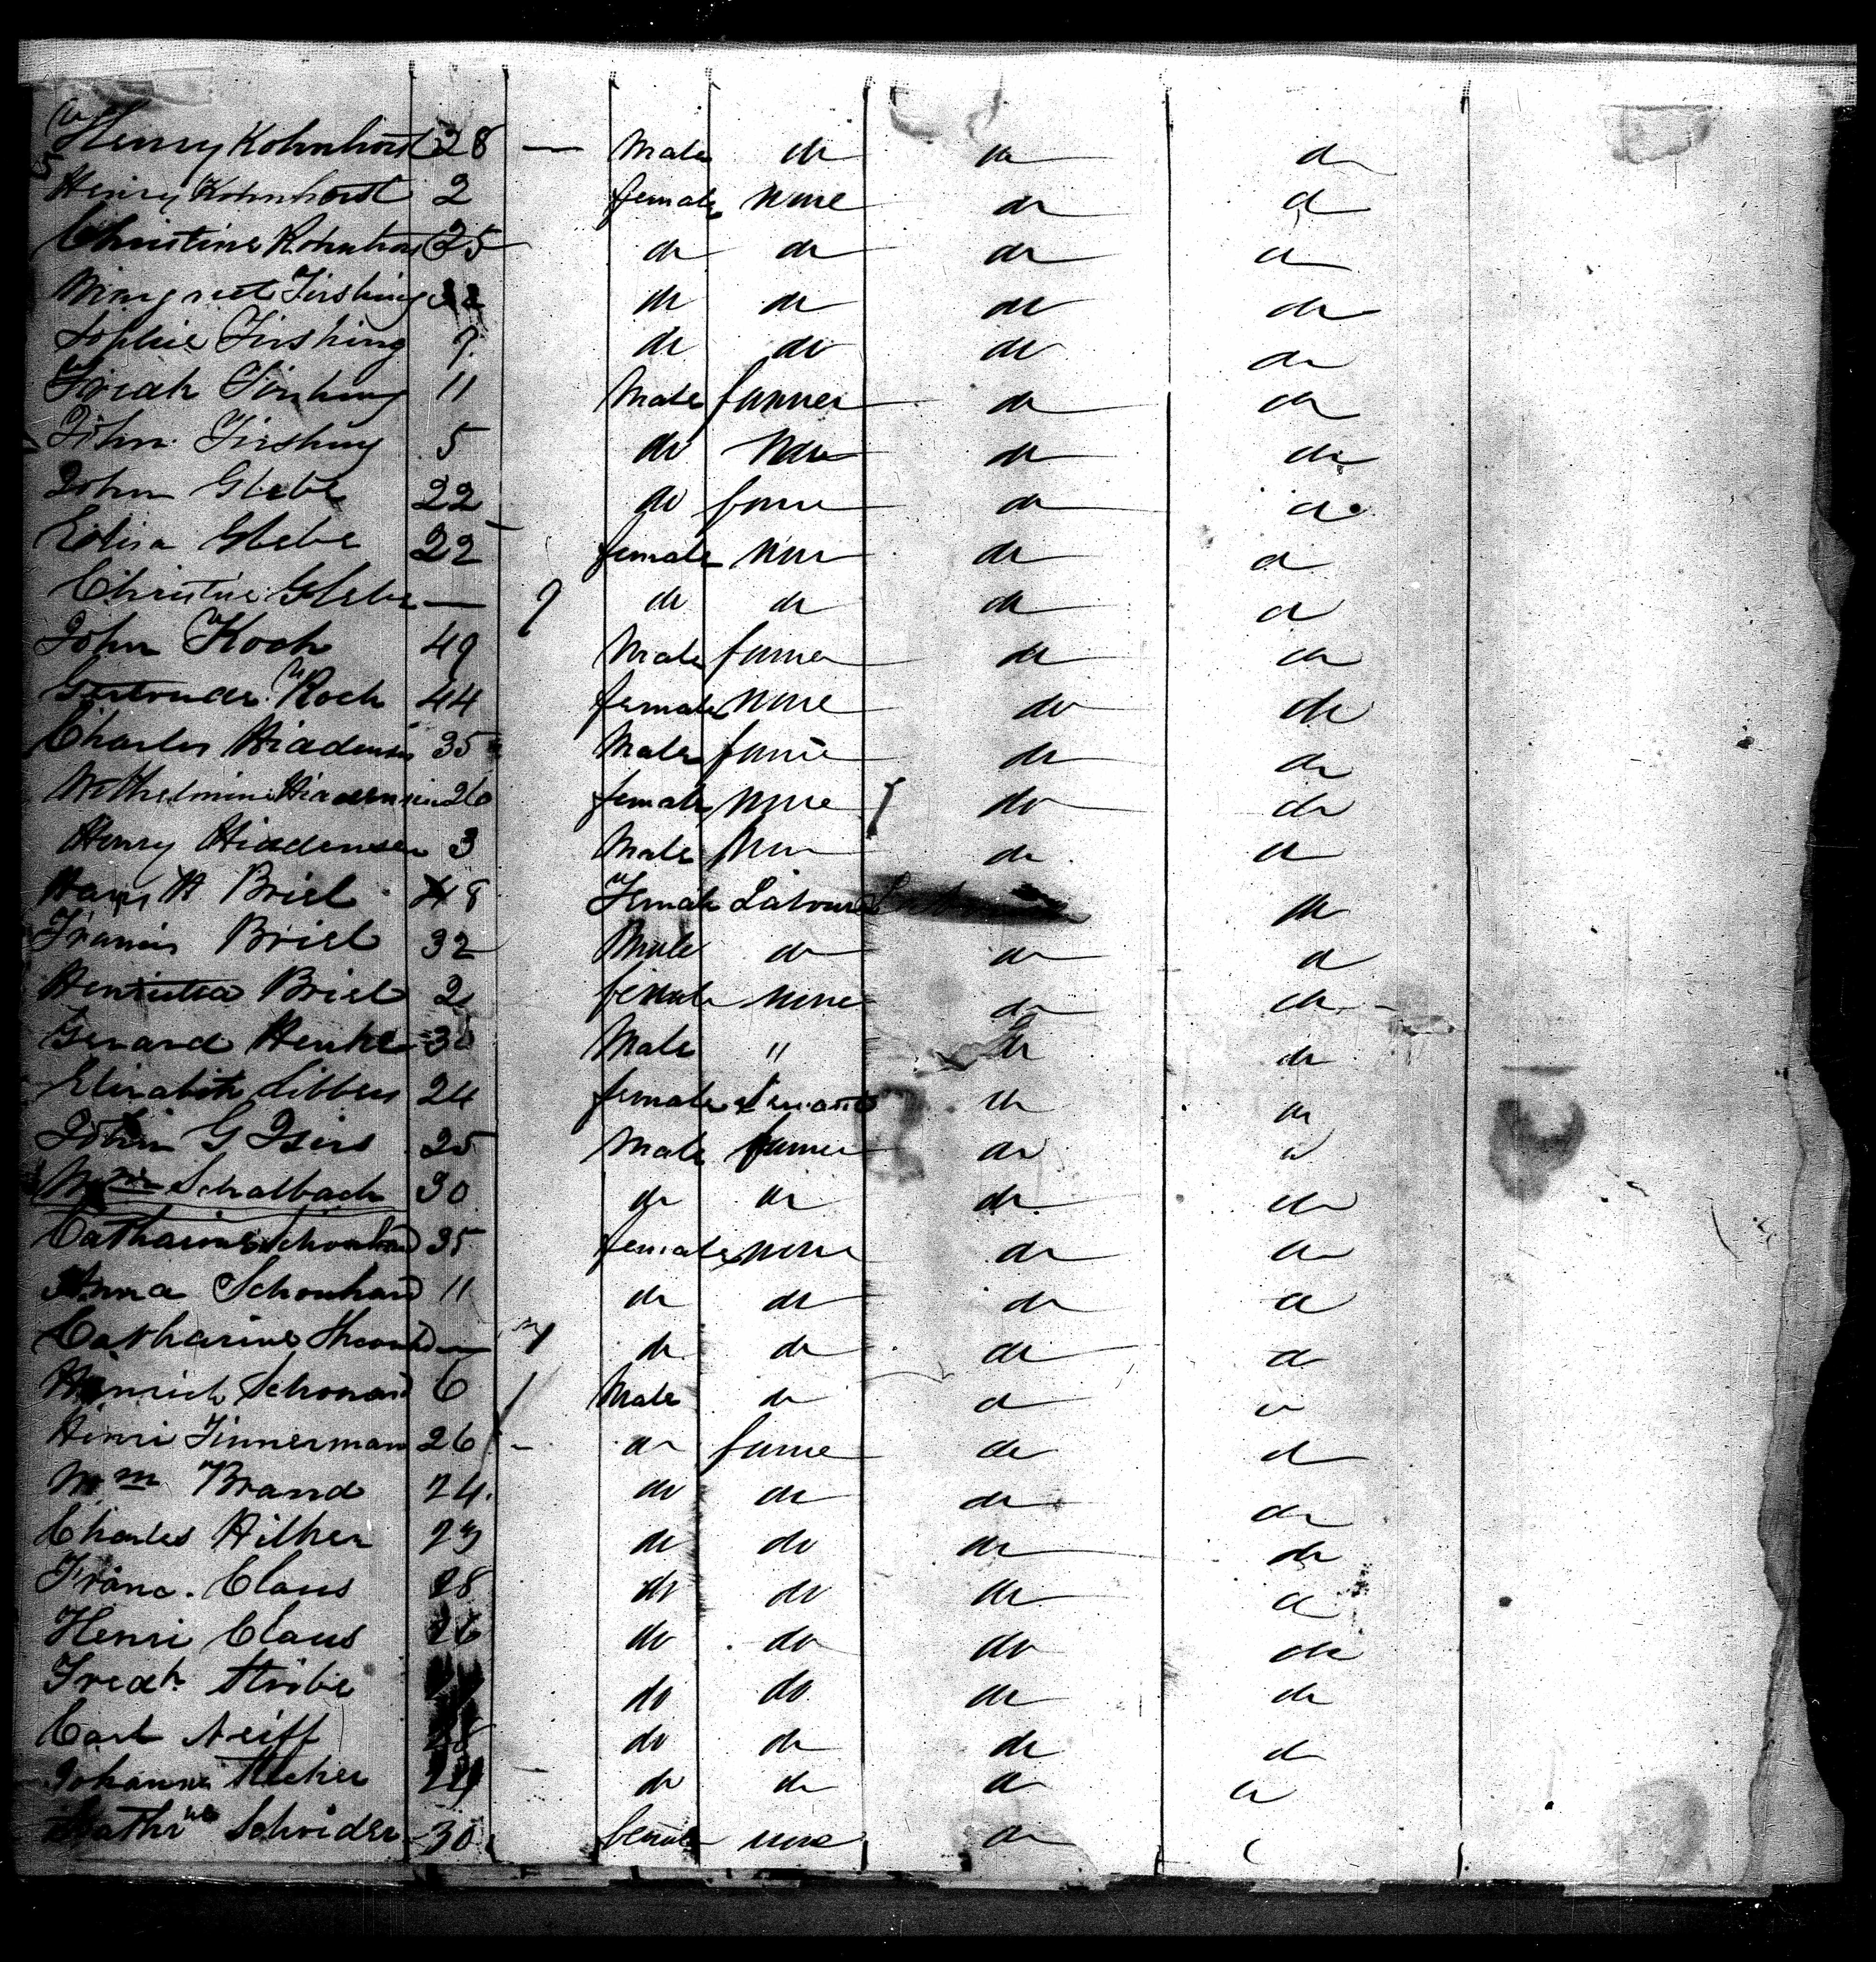 Henry Kohnhorst 28 — Male do do do
Henry Kohnhorst 2 female none do do
Christine Kohnhorst 25 do do do do
Margret Firshing do do do do
Sophie Firshing 9 do do do do
Fredk Firshing 11 Male farmer do do
John Firshing 5 do None do do
John Glebe 22 do farmer do do
Elisa Glebe 22 female none do do
Christine Glebe — 9 do do do do
John Koch 49 Male farmer do do
Gertrude Koch 44 female none do do
Charles Hiddensen 35 Male farmer do do
Wilhelmine Hiddensen 26 female none do do
Henry Hiddensen 3 Male None do do
H Briel 48 Female Labourer do
Francis Briel 32 Male do do do
Henrietta Briel 2 female none do do
Gerard Henke 30 Male " do do
Elizabeth Libbers 24 female Servant do do
John G 25 Male farmer do do
Wm Schalbach 30 do do do do
Catharine Schonhard 35 female none do do
Anna Schonhard 11 do do do do
Catharine — do do do do
Heinrich Schonard 6 Male do do do
Henri Finnerman 26 - do farmer do do
Wm Brand 24 do do do do
Charles Hilker 23 do do do do
Franc. Claus 28 do do do do
Henri Claus 26 do do do do
Fredk Stribe do do do do
Carl Neiff 28 do do do do
Johannes do do do do
Cathrine Schrider 30 female none do